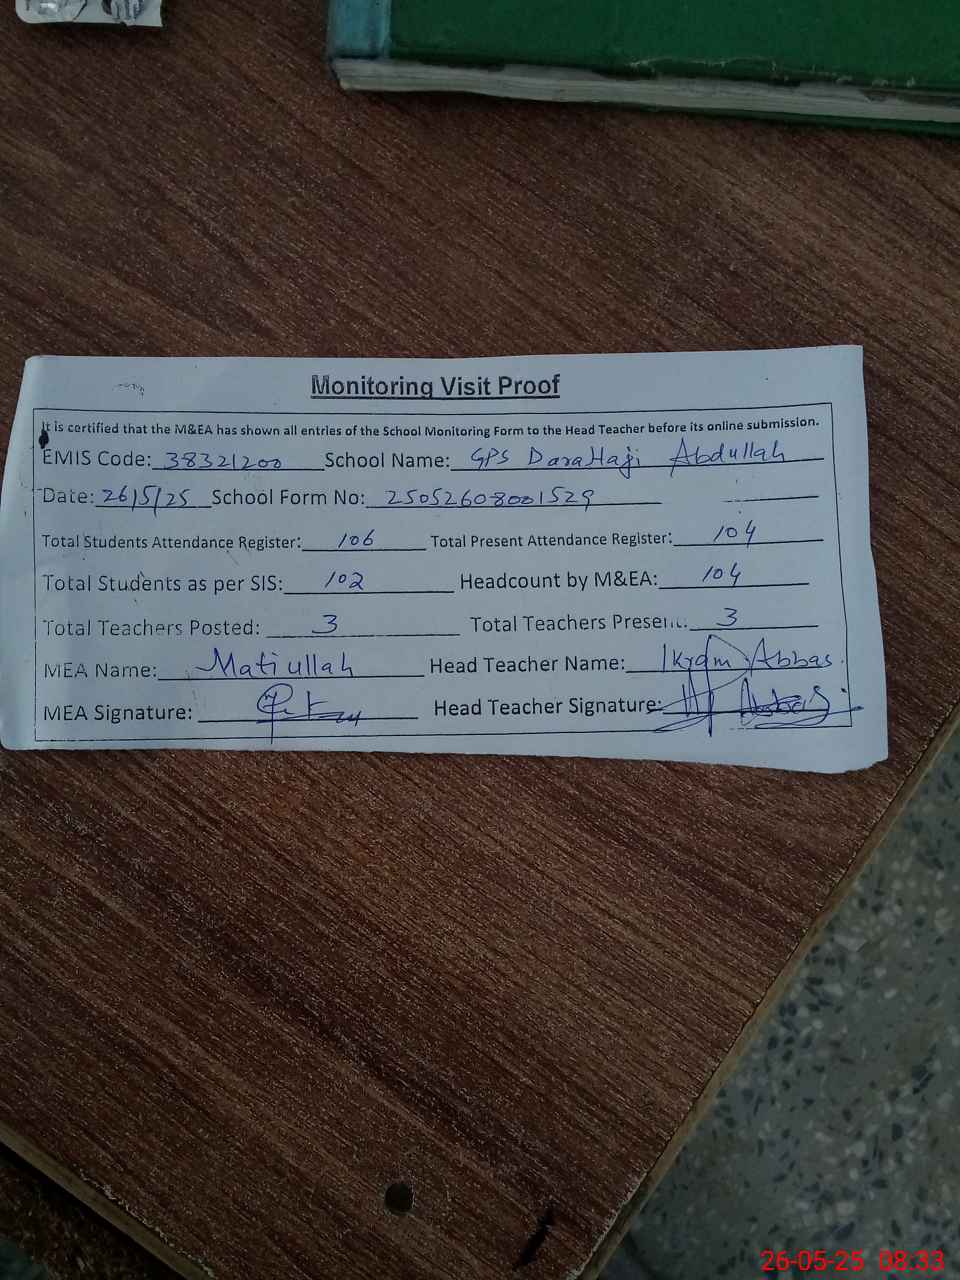 Monitoring Visit Proof
It is certified that the M&EA has shown all entries of the School Monitoring Form to the Head Teacher before its online submission.
EMIS Code: 38321200 School Name: GPS Dara Haji Abdullah
Date: 26/5/25 School Form No: 25052608001529
Total Students Attendance Register: 106 Total Present Attendance Register: 104
Total Students as per SIS: 102 Headcount by M&EA: 104
Total Teachers Posted: 3 Total Teachers Present: 3
MEA Name: Matiullah Head Teacher Name: Ikram Abbas.
MEA Signature: Head Teacher Signature:
26-05-25 08:33